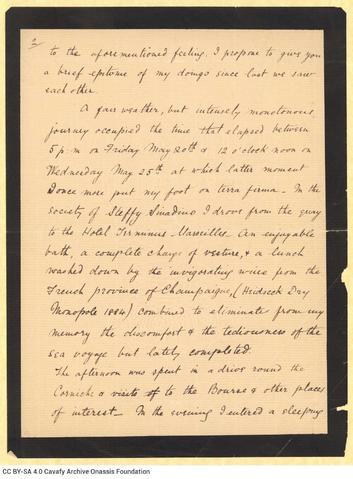 2/
to the aforementioned feeling, I propose to give you
a brief epitome of my doings since last we saw
each other.
A fair weather, but intensely monotonous,
journey occupied the time that elapsed between
5 p.m on Friday May 20th & 12 o'clock noon on
Wednesday May 25th, at which latter moment
I once more put my foot on terra firma — In the
society of Steffy Sinadino I drove from the quay
to the Hotel Terminus - Marseilles. An enjoyable
bath, a complete change of vesture, & a lunch
washed down by the invigorating wines from the
French province of Champaigne, (Heidseck Dry
Monopole 1884) combined to eliminate from my
memory the discomfort & the tediousness of the
sea voyage but lately completed.
The afternoon was spent in a drive round the
Corniche & visits to the Bourse & other places
of interest — In the evening I entered a sleeping
CC BY-SA 4.0 Cavafy Archive Onassis Foundation